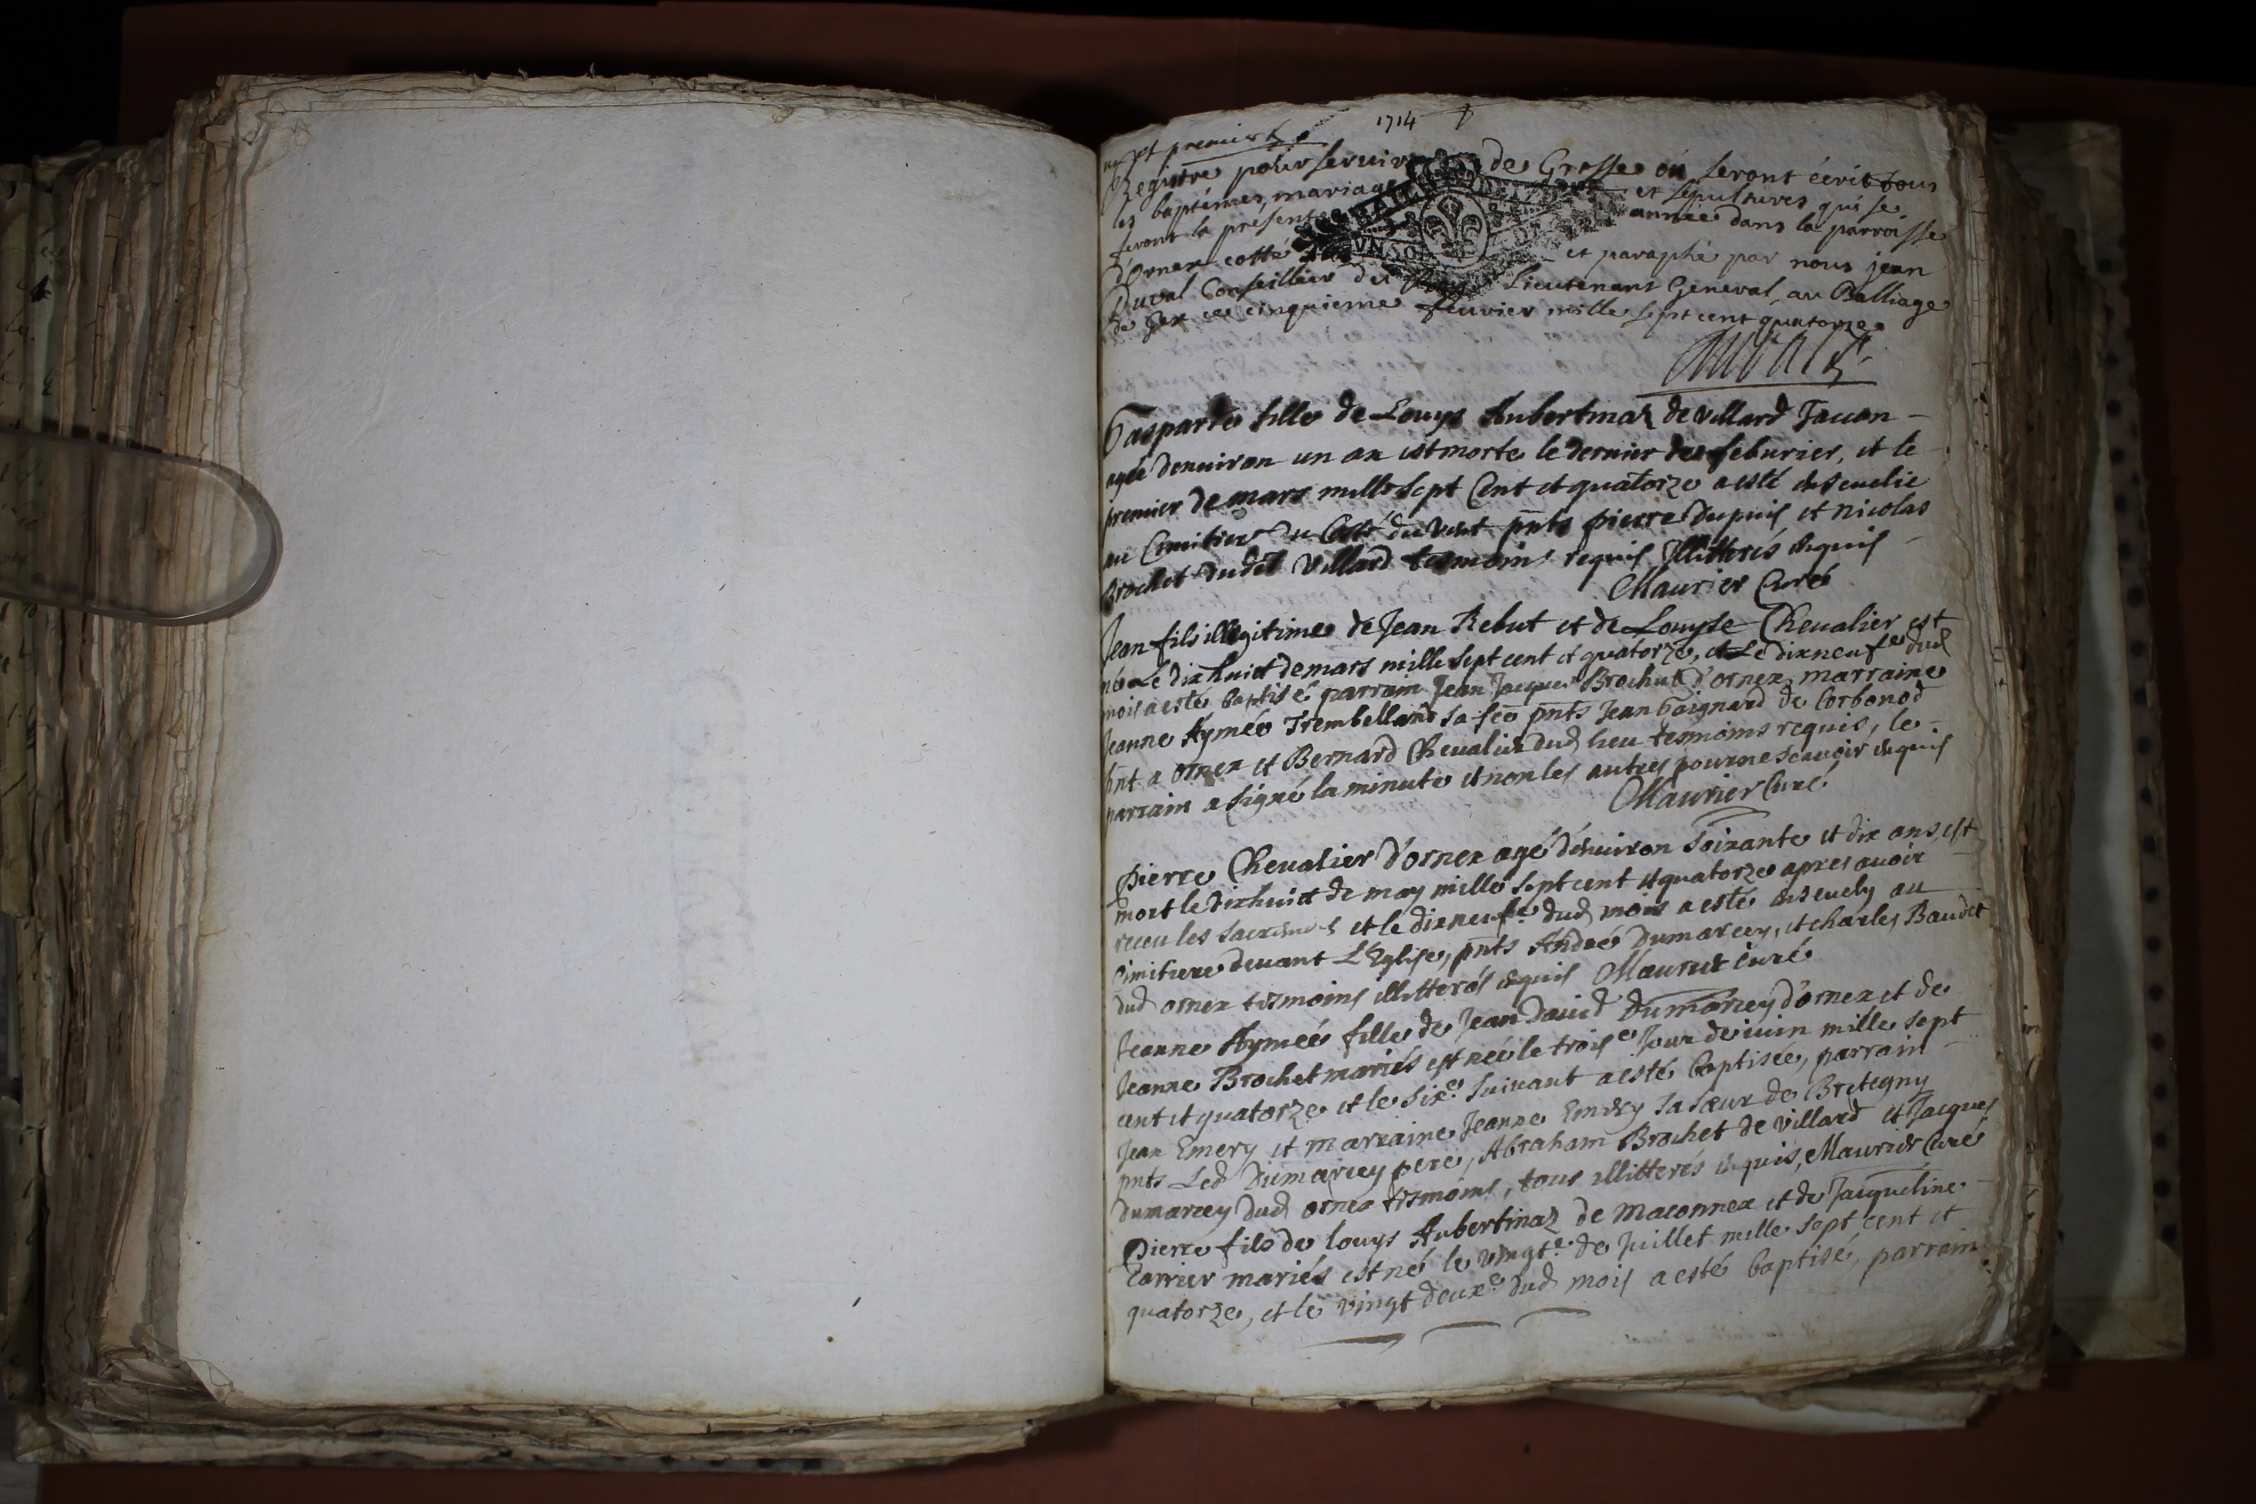 1714
et premier
Registre pour servir de Grosse ou seront écrit tous
les baptêmes, mariages et sepultures qui se
feront la presente année dans la parroisse
d'ornex cotté et paraphé par nous jean
Duval Conseiller du Roy Lieutenant General au Balliage
de Gex ce cinquieme feuvrier mille sept cent quatorze
Duval
Gasparde fille de Louys Aubertinaz de Villard Tacon
agée denuiron un an est morte le dernier de feburier, et le
premier de mars mille sept Cent et quatorze a esté enseuelie
au Cimitiere du Costé du vent pnts pierre Dupuis et nicolas
Brochet dudit Villard tesmoins requis Illitterés enquis
Maurier Curé
Jean fils illegitime de Jean Rebut et de Louyse Cheualier est
né Le dixhuict de mars mille sept cent et quatorze, et Le dixneufe dud
mois a esté baptisé parrain Jean Jacques Brochut d'ornex marraine
Jeanne Aymée Trembelland sa fee pnts Jean Goignard de Corbonod
hnt a ornex et Bernard Cheualier dud lieu tesmoins requis, le
parrain a signé la minute et non les autres pour ne scauoir enquis
Maurier Curé
pierre Cheualier d'ornex agé d'enuiron soixante et dix ans, est
mort le dixhuict de may mille sept cent et quatorze apres auoir
receu les sacremens et le dixneufe dud mois a esté enseuely au
Cimitiere deuant L'Eglise, pnts André Dumarcey, et charles Baudet
dud ornex tesmoins illitterés enquis Maurier curé
Jeanne Aymée fille de Jean Dauid Dumarcey d'ornex et de
Jeanne Brochet mariés est née le troise Jour de iuin mille sept
cent et quatorze et le sixe suiuant a esté baptisée, parrain
Jean Emery et marraine Jeanne Emery sa sœur de Bretegny
pnts Led Dumarcey pere, Abraham Brochet de villard et Jacques
Dumarcey dud ornex tesmoins, tous illitterés enquis, Maurier Curé
pierre fils de louys Aubertinaz de maconnex et de Jacqueline
Carrier mariés est né le vingte de Juillet mille sept cent et
quatorze, et le vingt deuxe dud mois a esté baptisé, parrain